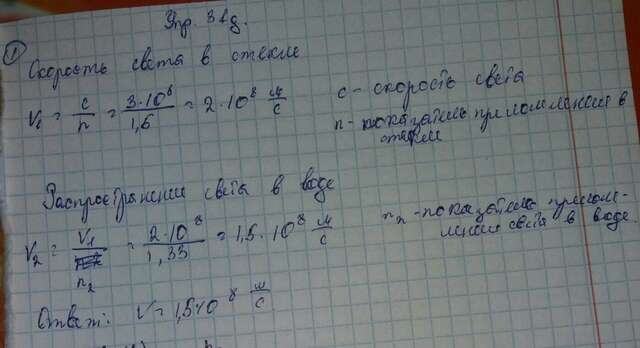 Упр. 31д.
①
Скорость света в стекле
V₁ = c/n = 3·10⁸/1,5 = 2·10⁸ м/с
c - скорость света
n - показатель преломления в
стекле
Распространение света в воде
V₂ = V₁/n₂ = 2·10⁸/1,33 = 1,5·10⁸ м/с
n₂ - показатель прелом-
ления света в воде.
Ответ: V = 1,5·10⁸ м/с